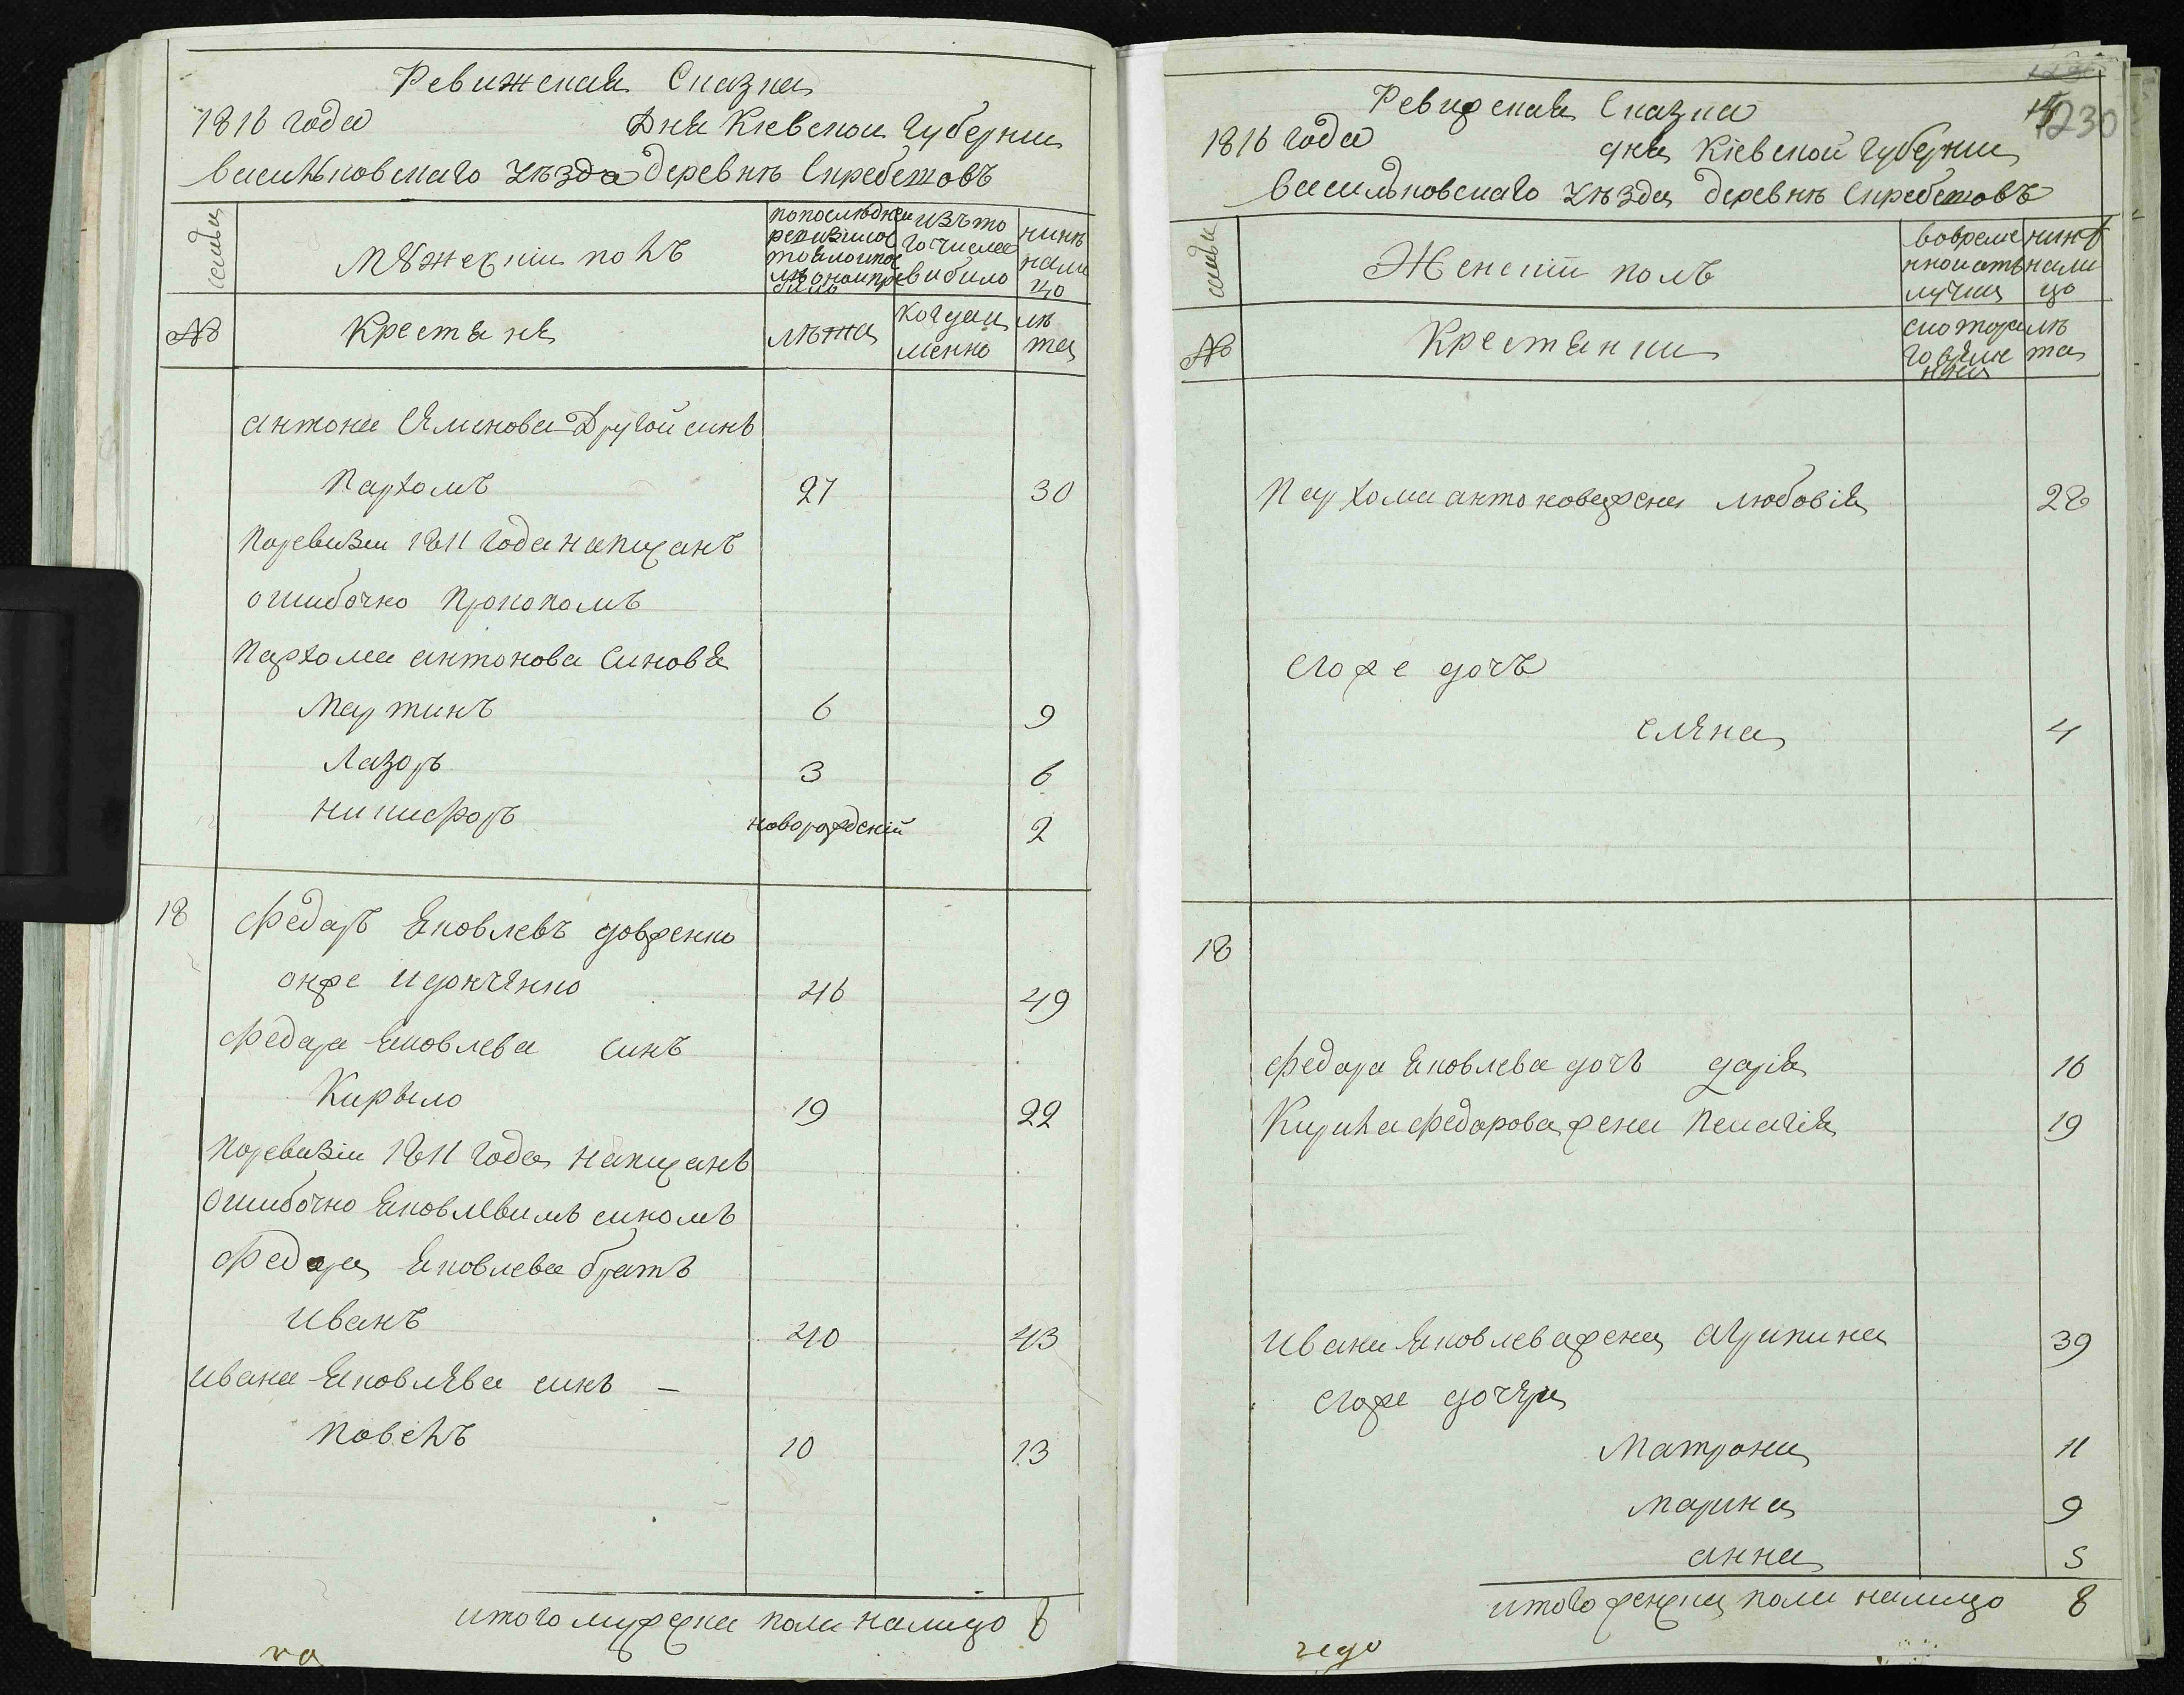 Ревижская Сказка
1816 года Дня Кіевской Губерніи
Василковскаго уѣзда деревнѣ Скребетовъ
семьи
Мужескій полъ
изъ то го числа вибило
нинѣ нали цо
№
Крестяне
лѣта
когда именно
лѣ та
Антона Семенова Другой синъ
Пархомъ 27 30
Поревизіи 1811 года написанъ
ошибочно Прокопомъ
Пархома антонова Синовя
Мартинъ 6 9
Лазоръ 3 6
Никифоръ новорожденій 2
18 Федоръ Яковлевъ довженко
онже идончѣнко 46 49
Федора Яковлева синъ
Кирыло 19 22
Поревизіи 1811 года написанъ
Ошибочно Яковлевимъ синомъ
Федора Яковлева братъ
Иванъ 40 43
Ивана Яковлева синъ –
Повелъ 10 13
итого мужеска пола налицо 8
ка
230
Ревижская Сказка
1816 года дня Кіевской Губерніи
Василковскаго уѣзда деревнѣ Скребетовъ
семьи
Женскій полъ
вовреме нной отъ лучки
нинѣ нали цо
№
Крестянки
скоторого времѣни
лѣ та
Пархома антонова жена любовія 28
егоже дочъ
елена 4
18
Федора Яковлева дочъ дарія 16
Кирила Федорова жена Пелагія 19
Ивана Яковлева жена Агрипина 39
егоже дочери
Матрона 11
Марина 9
анна 5
итого женска пола налицо 8